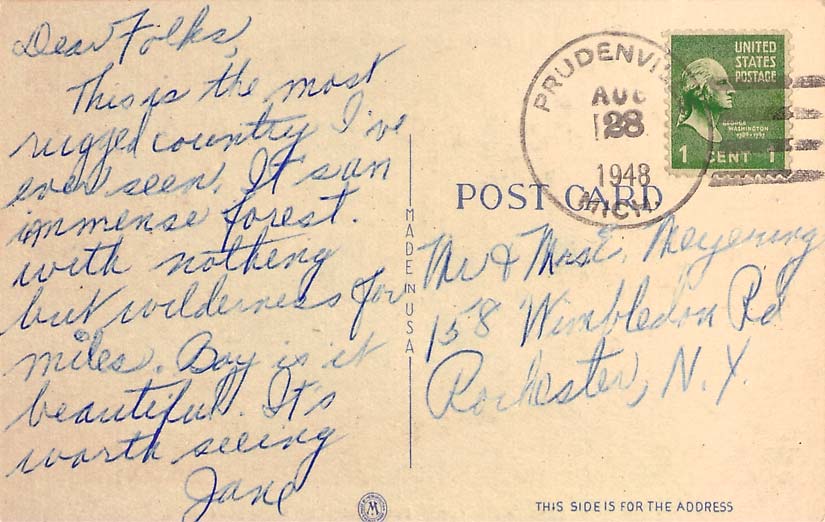 Dear Folks,
This is the most
rugged country I've
ever seen. It's an
immense forest.
with nothing
but wilderness for
miles. Boy is it
beautiful. It's
worth seeing
Jane
MADE IN USA
PRUDENVI
AUG
28
1948
MICH.
UNITED
STATES
POSTAGE
GEORGE
WASHINGTON
1 CENT 1
POST CARD
Mr & Mrs E. Meyering
158 Wimbledon Rd
Rochester, N.Y.
W
THIS SIDE IS FOR THE ADDRESS